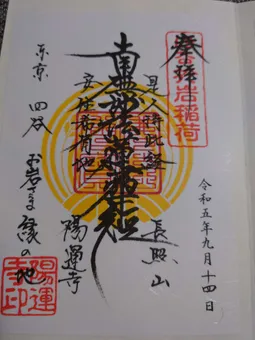 奉拝
岩稲荷
令和五年九月十四日
長照山
是人持此経
南無妙法蓮華経
安住希有地
陽運寺
お岩さま縁の地
東京 四谷
陽運寺印